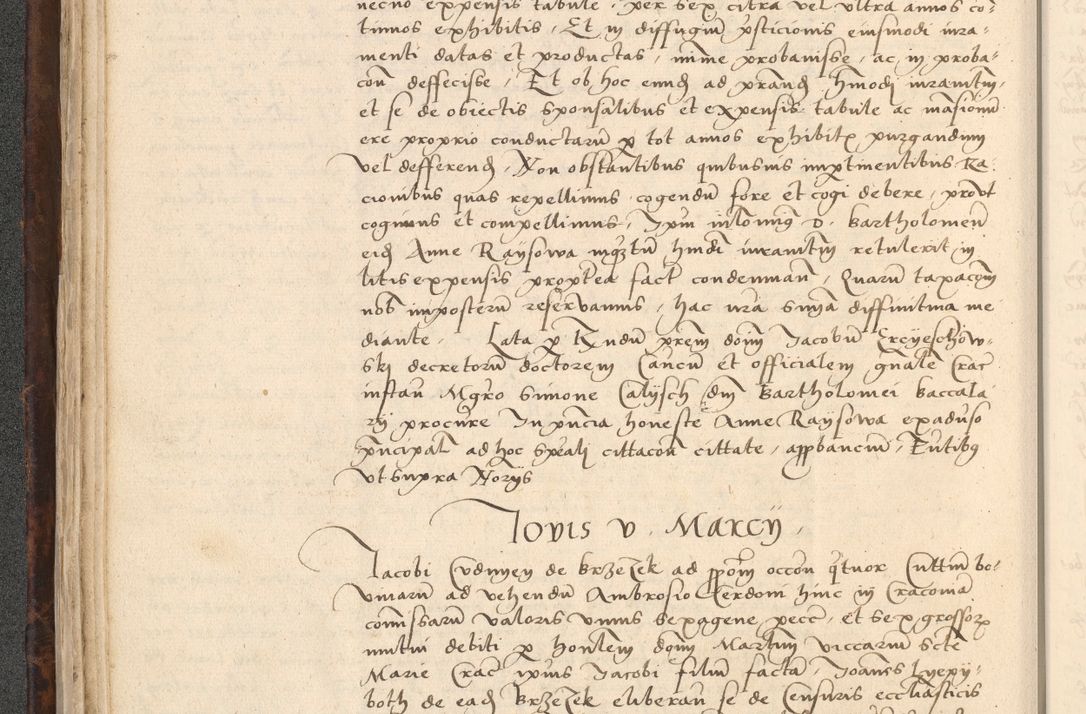 necno expensis tabule, per sex citra vel vltra annos co⸗
tinuos exhibitis, Et in diffugiu͂ p͂sticionis eiusmodi iura⸗
menti datas et productas, mi͂me probauisse, ac in proba⸗
co͂n deffecisse, Et ob hoc eund͂ ad p͂rand͂ h͂mo͂di iurame͂tu͂,
et se de obiectis sponsalibus et expensis tabule ac ma͂sionu͂
ere proprio conductaru͂ p tot annos exhibit purgandum
vel defferend͂, Non obstantibus quibusuis imp͂tinentibus Ra⸗
cionibus quas repellimus, cogendu͂ fore et cogi debere, prout
cogimus et compellimus, Ip͂m D. Bartholomeu͂
eid͂ Anne Raysowa h͂mdi iurame͂tu͂ retulerit in
litis expensis propt͂ea fact condemnan͂, Quaru͂ taxaco͂m
nob͂ imposteru͂ reservamus, hac n͂ra sn͂ia diffinitiua me
diante, Lata p d͂num Jacobu͂ Ercyeschow⸗
ski decretoru͂ doctorem Can͂cu͂ et officialem gn͂ale͂ Crac͂
instan͂ Mgr͂o Simone Calysch d͂ni Bartholomei baccala
rij procur͂e In pn͂cia honeste Anne Raysowa ex adu͂so
prin͂cipal͂ ad hoc sp͂eali cittaco͂n cittate, app͂banciu͂, Pn͂tibus
vt supra Norys
Jovis v. Marcij,
Jacobi Cudmyen de Brzezek ad p͂po͂m occo͂n q͂tuor Cuttin͂ bo⸗
vinaru͂ ad vehendu͂ Ambrosio Cerdoni hinc in Cracouia͂
comissaru͂ valoris vnius sexagene pecc͂, et sex grossor
mutui debiti p honle͂m do͂m Martin͂ viccariu͂ Scte
Marie Crac͂ ip͂ius Jacobi filiu͂ facta͂ Joan͂es
both de ead͂ Brzezek eliberan͂ se de Censuris eccl͂iasticis